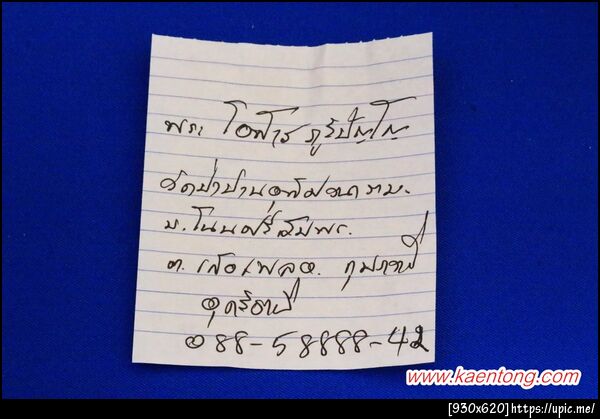 พระ โอฬาร ภูริปัญโญ
วัดป่า
บ. โนนศรีสมพร
ต. เสอเพลอ. กุมภวาปี
อุดรธานี
088-58888-42
www.kaentong.com
[930x620]https://upic.me/